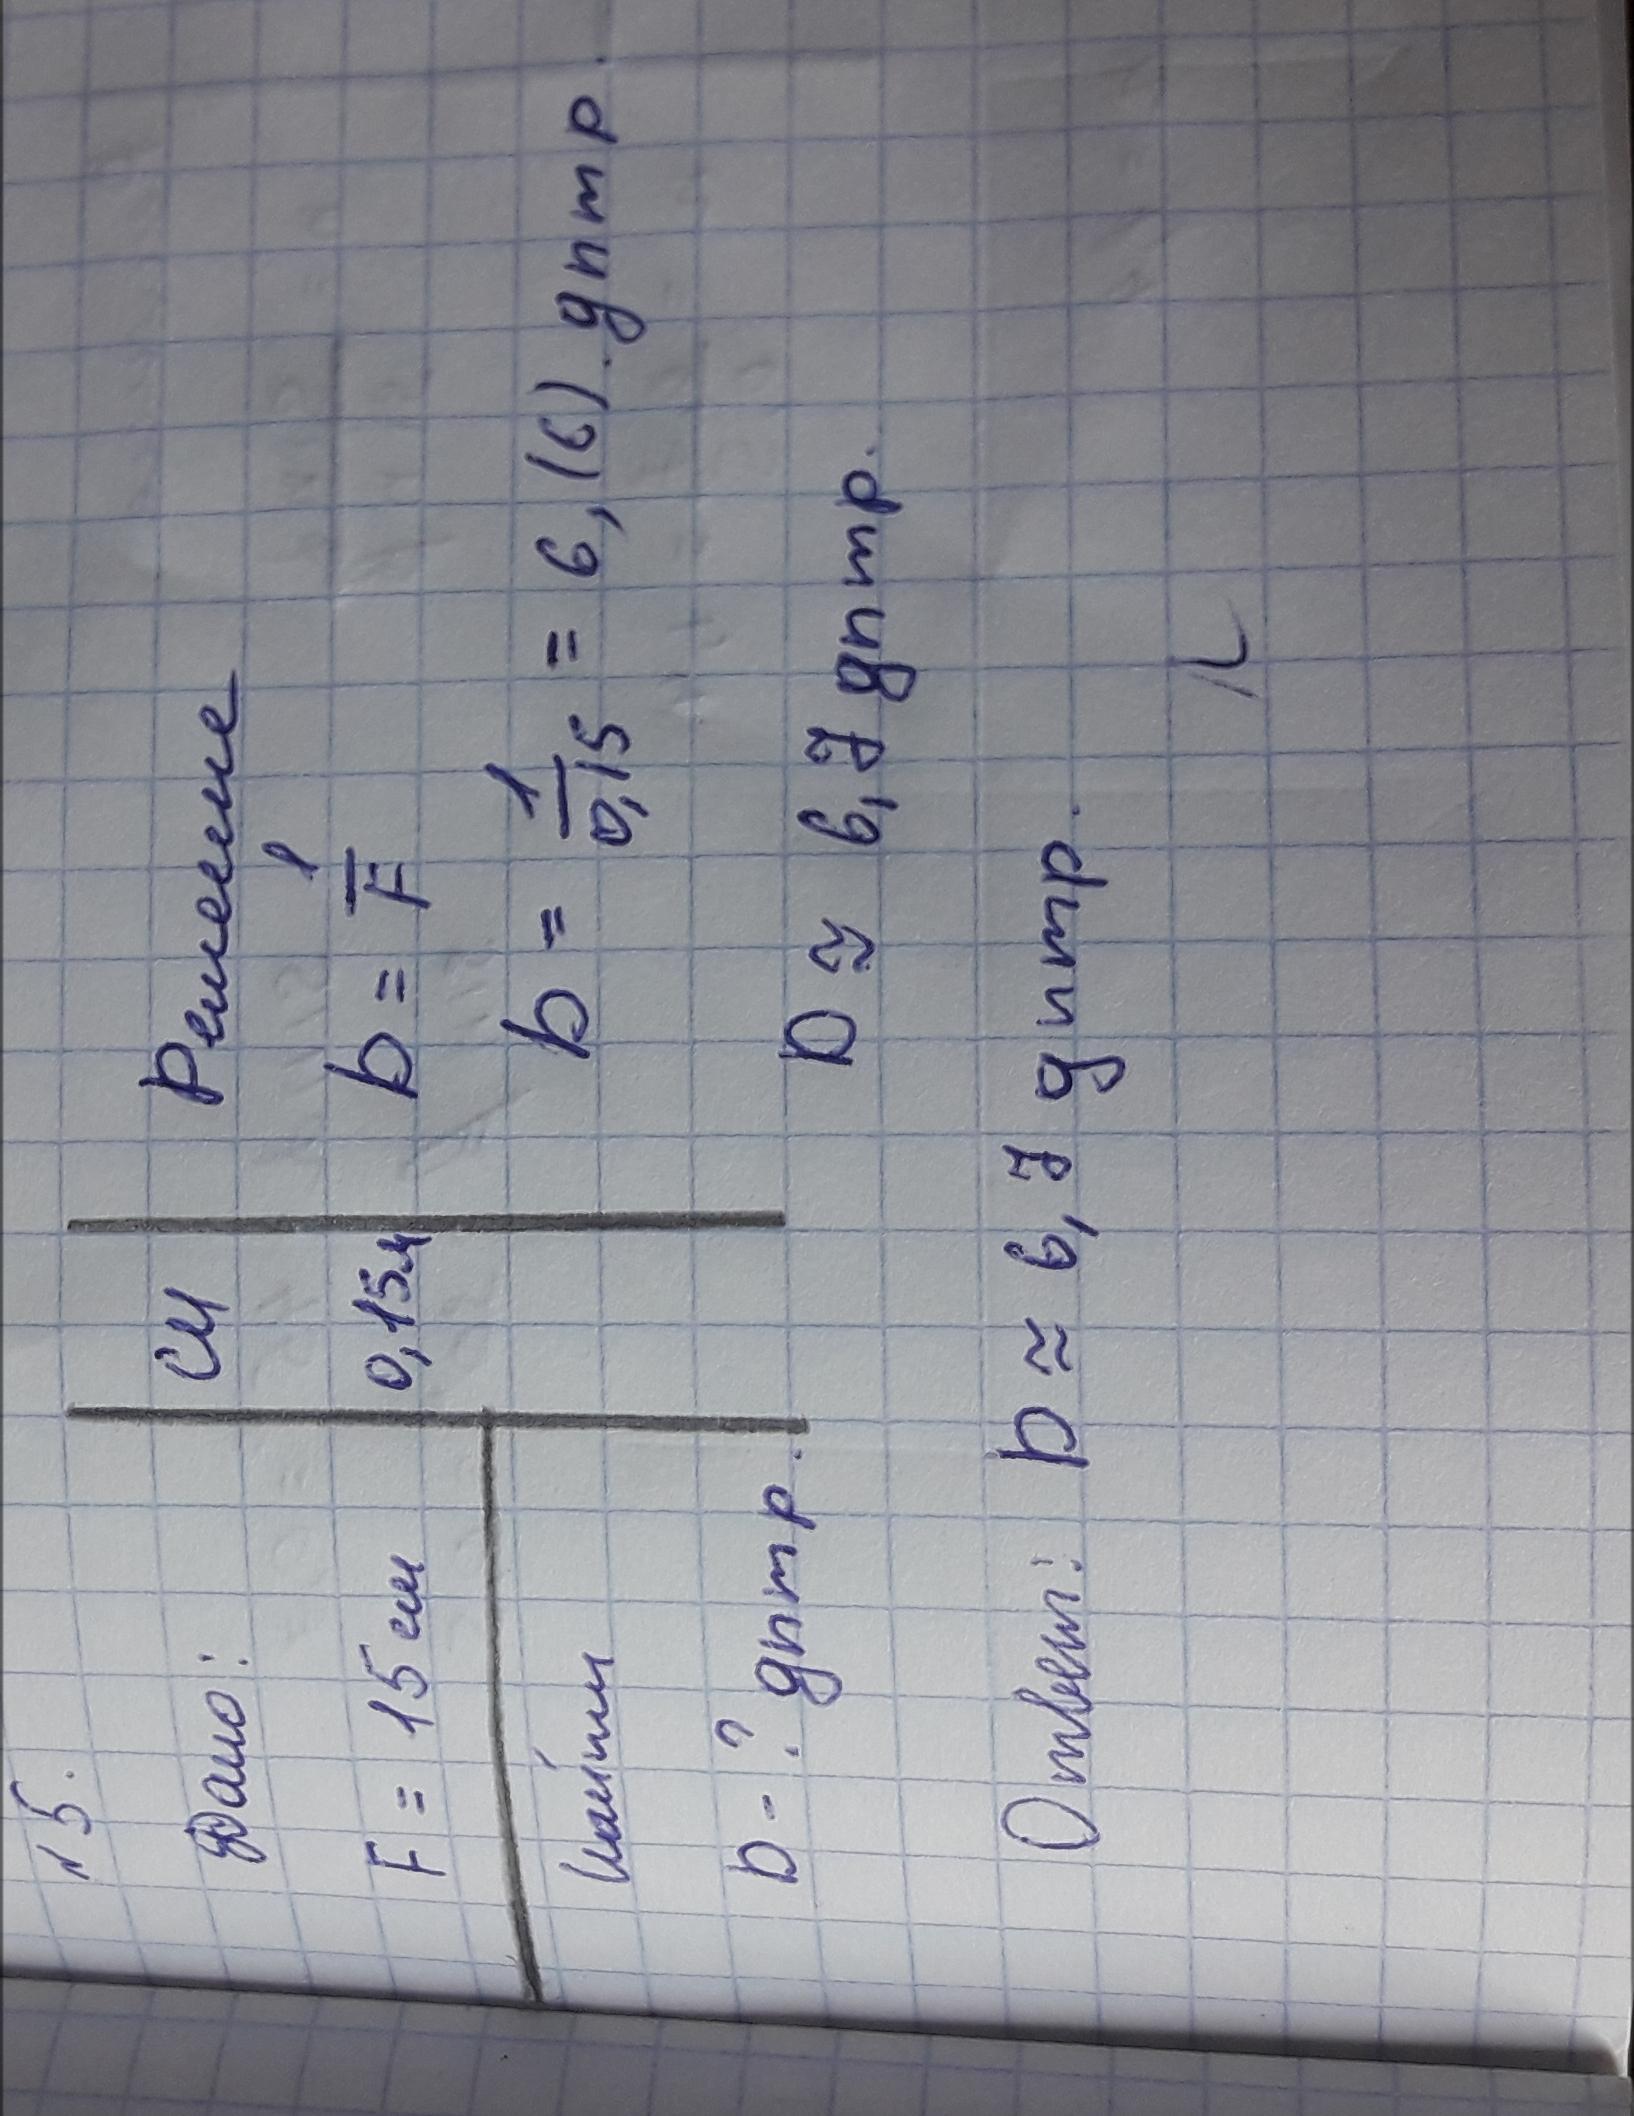 №5.
Дано:
СИ
Решение
F = 15 см
0,15 м
D = 1/F
Найти
D = 1/0,15 = 6,(6) дптр.
D - ? дптр.
D ≈ 6,7 дптр.
Ответ: D ≈ 6,7 дптр.